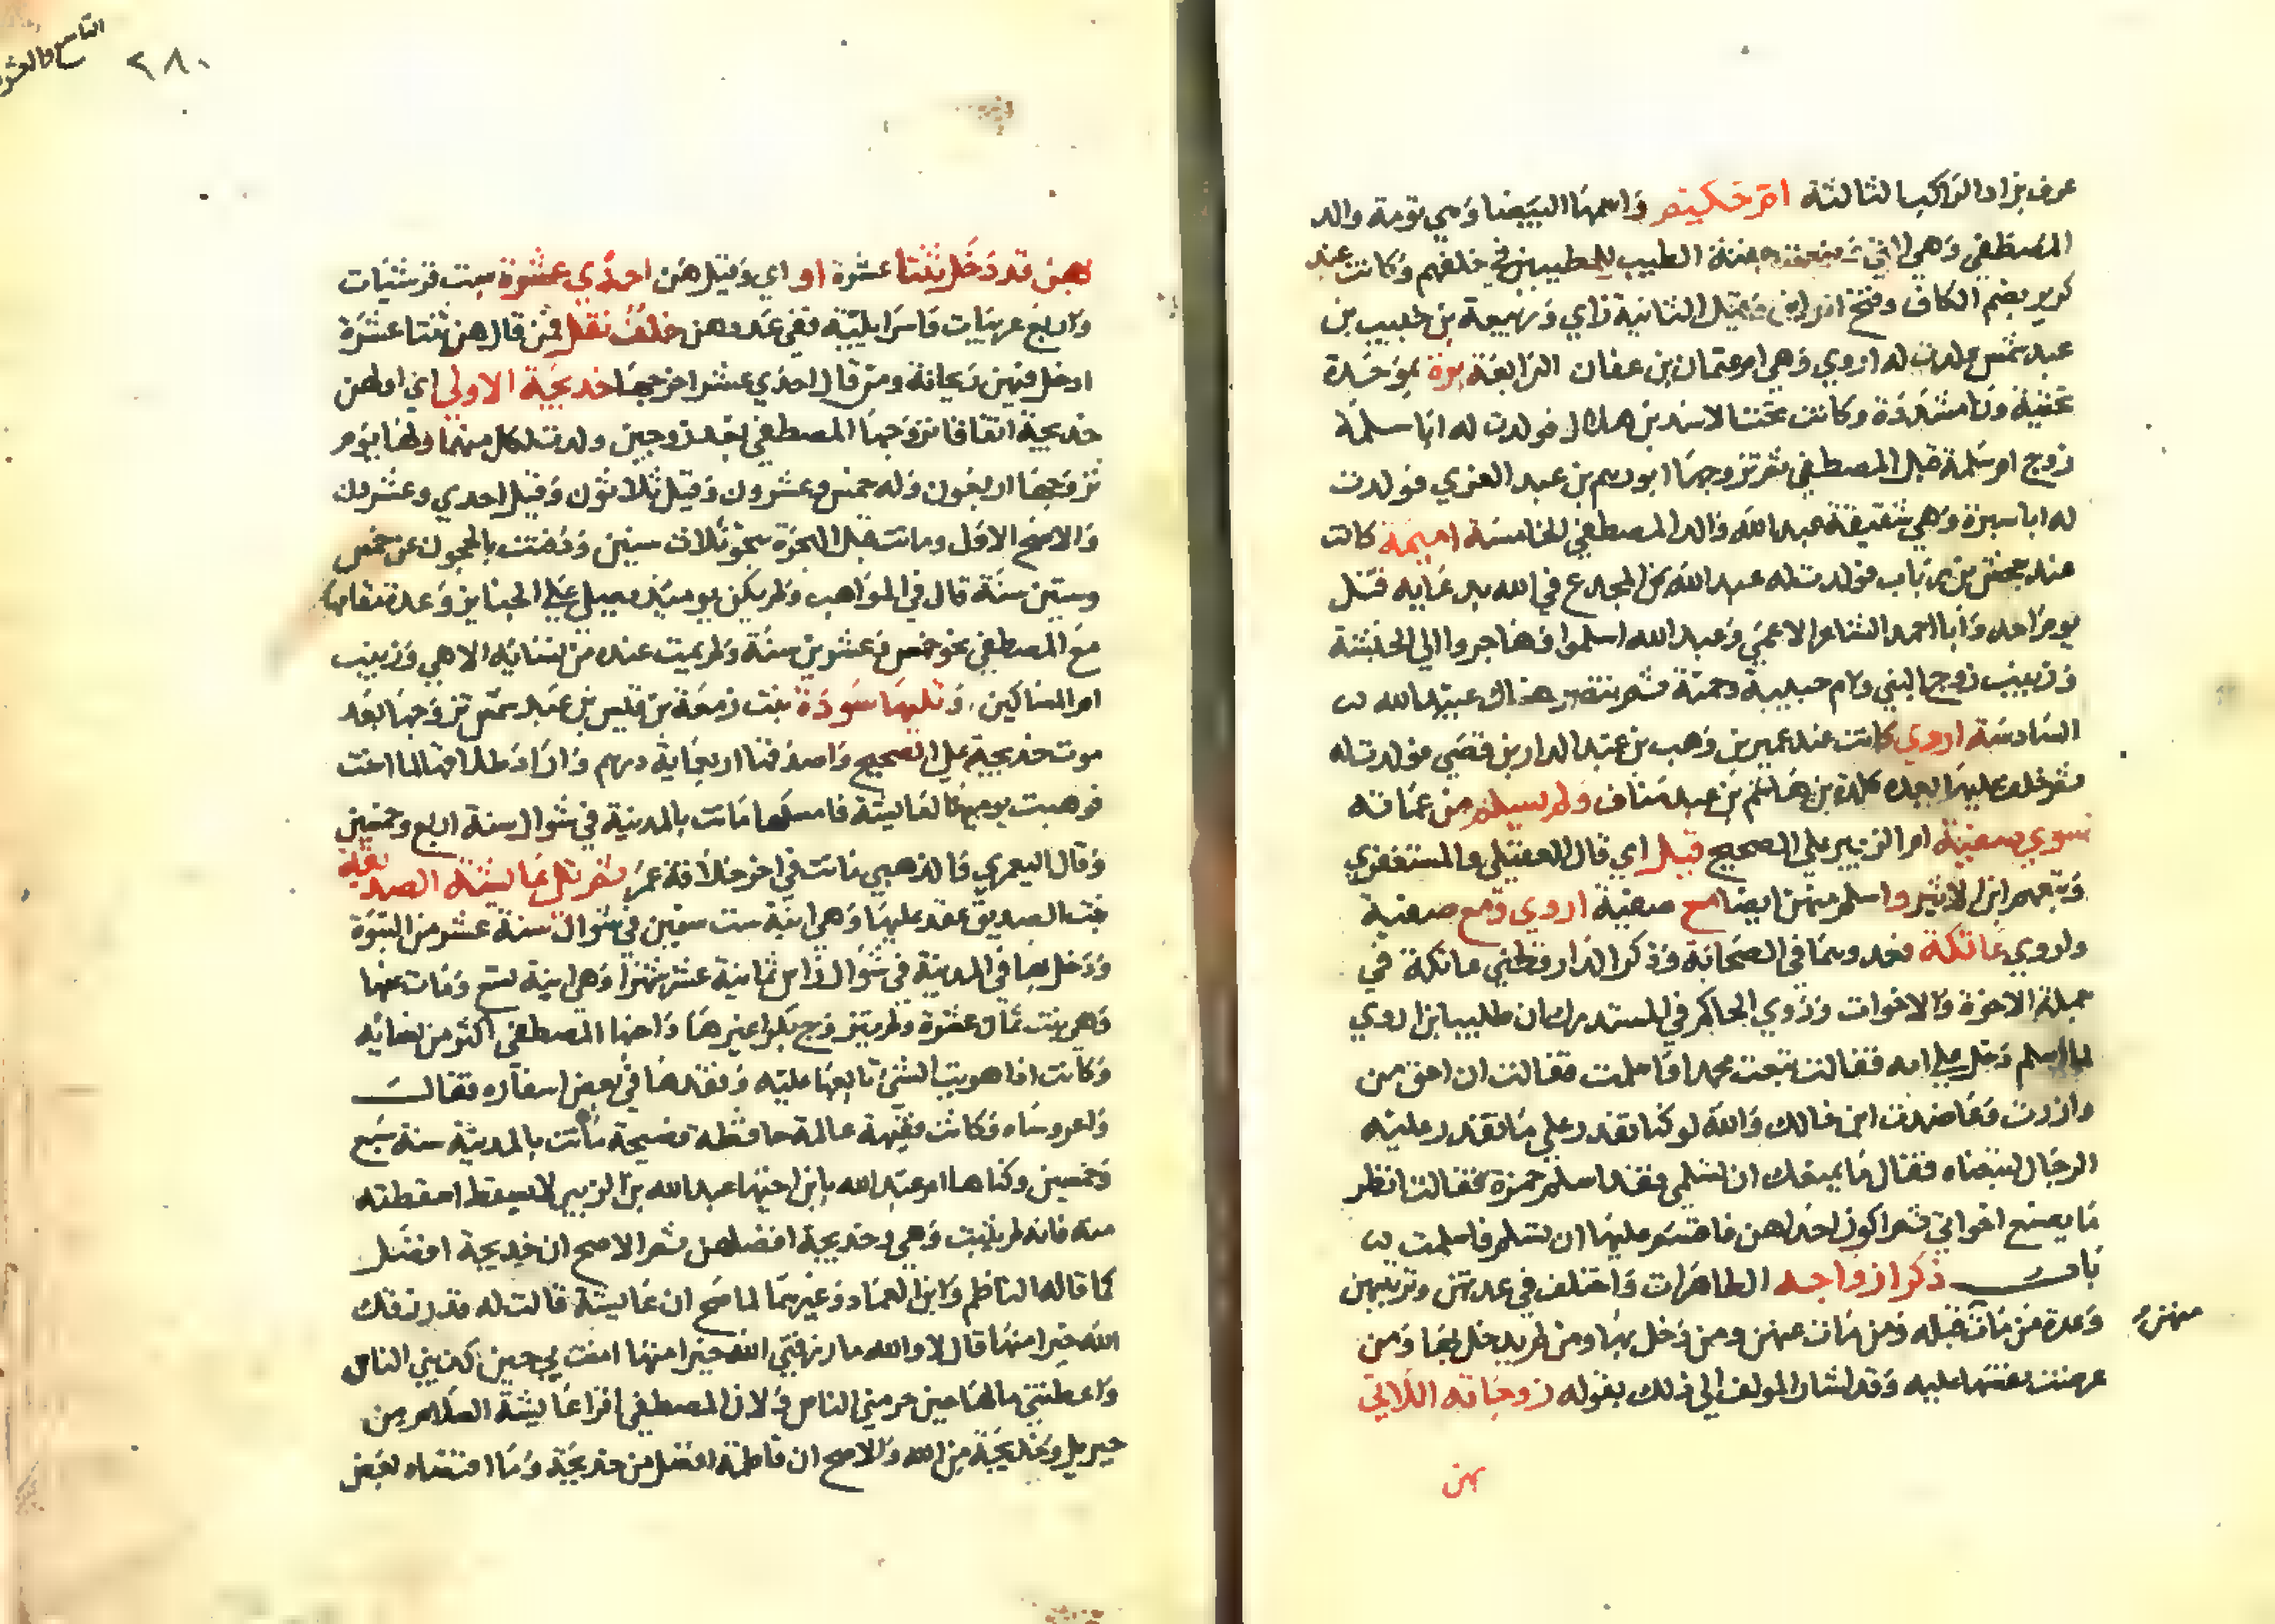 عرف بزاد الراكب الثالثة ام حكيم واسمها البيضا وهي تومة والد
المصطفى وهي التي وضعت جفنة الطيب للمطيبين في حلفهم وكانت عند
كريز بضم الكاف وفتح الراء وقيل الثانية زاي وربيعة بن حبيب بن
عبد شمس ولدت له اروي وهي ام عثمان بن عفان الرابعة برة بموحدة
تحتية ورا مشددة وكانت تحت الاسد بن هلال فولدت له ابا سلمة
زوج ام سلمة قبل المصطفى ثم تزوجها ابو رهم بن عبد العزي فولدت
له ابا سبرة وهي شقيقة عبد الله والد المصطفى الخامسة اميمة كانت
عند جحش بن رياب فولدت له عبد الله المجدع في الله بدعايه قتل
يوم احد وابا احمد الشاعر الاعمي وعبد الله اسلموا وهاجروا الي الحبشة
وزينب زوج النبي وام حبيبة وحمنة ثم تنصر هناك عبيد الله
السادسة اروي كانت عند عمير بن وهب بن عبد الدار بن قصي فولدت له
ثم خلف عليها بعده كلدة بن هاشم بن عبد مناف ولم يسلم من عماته
سوي صفية ام الزبير علي الصحيح قيل اي قال العقيلي والمستغفري
وتبعهم ابن الاثير واسلم منهن ايضا مع صفية اروي ومع صفية
واروي عاتكة فعدوهما في الصحابة وذكر الدارقطني عاتكة في
جملة الاخوة والاخوات وروي الحاكم في المستدرك ان طليبا بن اروي
لما اسلم دخل علي امه فقالت تبعت محمدا فاسلمت فقالت ان احق من
وازرت وعاضدت ابن خالك والله لو كنا نقدر علي ما تقدر عليه
الرجال لتبعناه فقال ما يمنعك ان تسلمي فقد اسلم حمزة فقالت انظر
ما يصنع اخواتي ثم اكون احداهن فاقسم عليها ان تسلم فاسلمت
باب ذكر ازواجه الطاهرات واختلف في عدتهن وترتيبهن
وعدة من مات قبله ومن مات عنهن ومن دخل بها ومن لم يدخل بها ومن منهن
عرضت نفسها عليه وقد اشار المولف الي ذلك بقوله زوجاته اللاتي
بهن
التاسع والعشر
٢٨٠
بهن قد دخل ثنتا عشرة او اي وقيل هن احدي عشرة ست قرشيات
واربع عربيات واسرايلية ففي عدهن خلف نقل فمن قال هن ثنتا عشرة
ادخل فيهن ريحانة ومن قال احدي عشر اخرجها خديجة الاولي اي اولهن
خديجة اتفاقا تزوجها المصطفى بعد زوجين ولدت لكل منهما ولها يوم
تزوجها اربعون وله خمس وعشرون وقيل ثلاثون وقيل احدي وعشرون
والاصح الاول وماتت قبل الهجرة بنحو ثلاث سنين ودفنت بالحجون عن خمس
وستين سنة قال في المواهب ولم يكن يوميذ يصلي علي الجنايز وعدة مقامها
مع المصطفى نحو خمس وعشرين سنة ولم يمت عنده من نسايه الا هي وزينب
ام المساكين وتليها سودة بنت زمعة بن قيس بن عبد شمس تزوجها بعد
موت خديجة علي الصحيح واصدقها اربعماية درهم واراد طلاقها لما اسنت
فوهبت يومها لعايشة فامسكها ماتت بالمدينة في شوال سنة اربع وخمسين
وقال اليعمري والذهبي ماتت في اخر خلافة عمر ثم تلي عايشة الصديقة
بنت الصديق عقد عليها وهي ابنة ست سنين في شوال سنة عشر من النبوة
ودخل بها في المدينة في شوال راس ثمانية عشر شهرا وهي ابنة تسع ومات عنها
وهي بنت ثمان عشرة ولم يتزوج بكرا غيرها واحبها المصطفى اكثر من نسايه
وكانت اذا هويت الشي تابعها عليه وفقدها في بعض اسفاره فقال
واعروساه وكانت فقيهة عالمة حافظة فصيحة ماتت بالمدينة سنة سبع
وخمسين وكناها ام عبد الله بابن اختها عبد الله بن الزبير لا بسقط اسقطته
منه فانه لم يثبت وهي وخديجة افضلهن ثم الاصح ان خديجة افضل
كما قاله الناظم وابن العماد وغيرهما لما صح ان عايشة قالت له قد رزقك
الله خيرا منها قال لا والله ما رزقني الله خيرا منها امنت بي حين كذبني الناس
واعطتني مالها حين حرمني الناس ولان المصطفى اقرا عايشة السلام من
جبريل وخديجة من الله والاصح ان فاطمة افضل من خديجة وما اقتضاه بعض